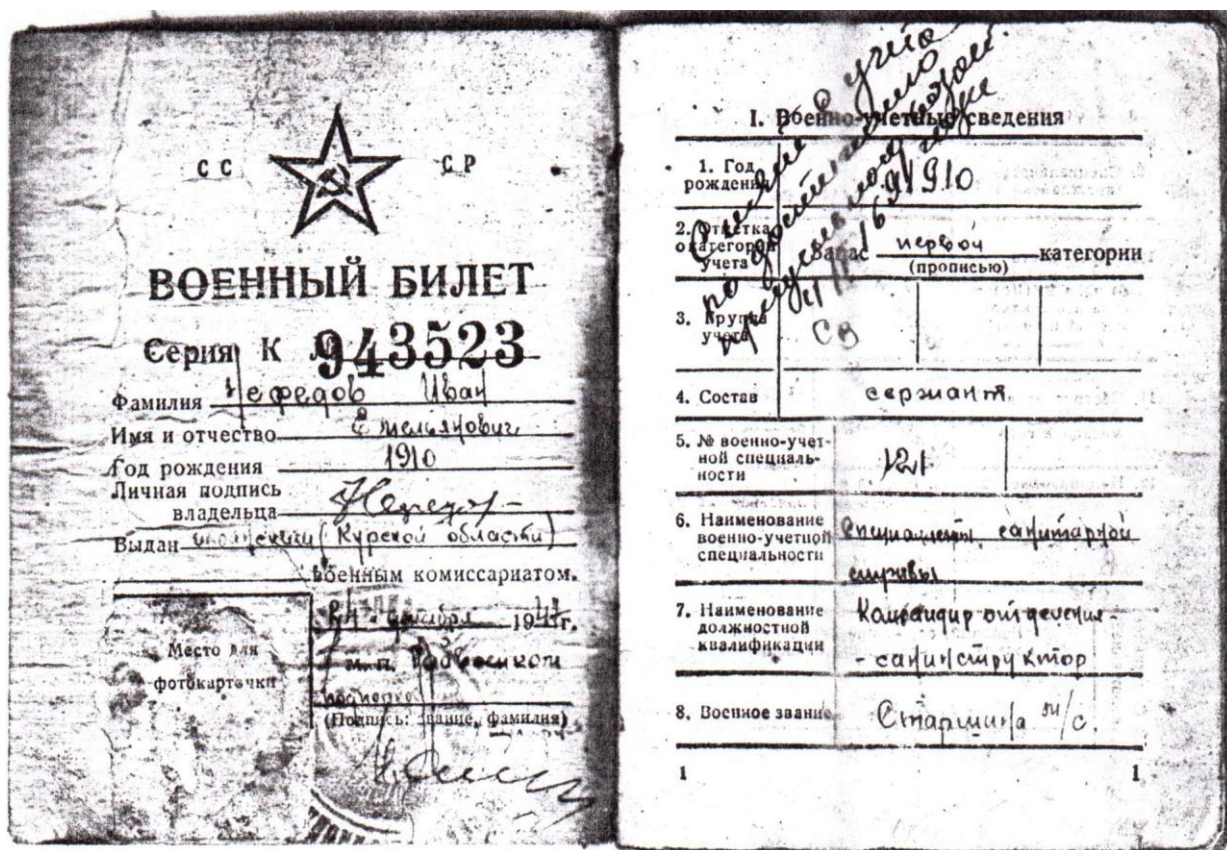 СС СР
ВОЕННЫЙ БИЛЕТ
Серия К № 943523
Фамилия Нефедов Иван
Имя и отчество Емельянович
Год рождения 1910
Личная подпись
владельца Нефедов
Выдан (Курской области)
военным комиссариатом.
194 г.
Место для
фотокарточки
М. П. Райвоенком
(Подпись: звание, фамилия)
Снят с учета
по достижению
предельного возраста
I. Военно-учетные сведения
1. Год
рождения 1910
2. Отметка
о категории
учета Запас первой категории
(прописью)
3. Группа
учета СВ
4. Состав сержант.
5. № военно-учет-
ной специаль-
ности 121
6. Наименование
военно-учетной
специальности Специалисты санитарной
службы
7. Наименование
должностной
квалификации Командир отделения-
- санинструктор
8. Военное звание Старшина м/с.
1 1